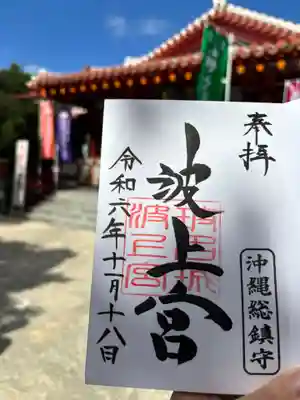 奉拝
波上宮
沖縄総鎮守
令和六年十一月十八日